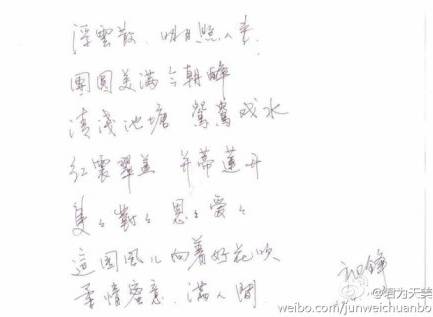 浮雲散、明月照人来
團圓美满今朝醉
清浅池塘 鴛鴦戏水
红裳翠盖 并蒂蓮开
雙々對々 恩々愛々
這園風儿向着好花吹
柔情蜜意、滿人間
祖鋒
@君为天
weibo.com/junweichuanbo